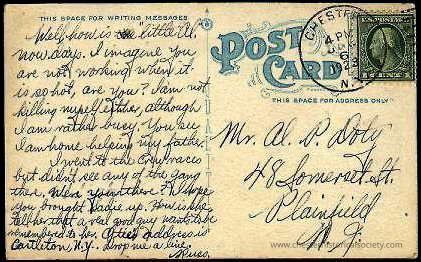 THIS SPACE FOR WRITING MESSAGES
Well how is "little Al"
now days. I imagine you
are not working when it
is so hot, are you? I am not
killing myself either, although
I am rather busy. You see
I am home helping my father.
I went to the races
but didn't see any of the gang
there. Were you there? I hope
you brought Sadie up. How is she
Tell her that a real good guy wants to be
remembered to her. address is
Carlton, N.Y. Drop me a line.
POST CARD
THIS SPACE FOR ADDRESS ONLY
Mr. Al. P. Doty
48 Somerset St.
Plainfield
N. J.
4 PM
6
N.Y.
U.S. POSTAGE
1 CENT 1
www.chesterhistoricalsociety.com